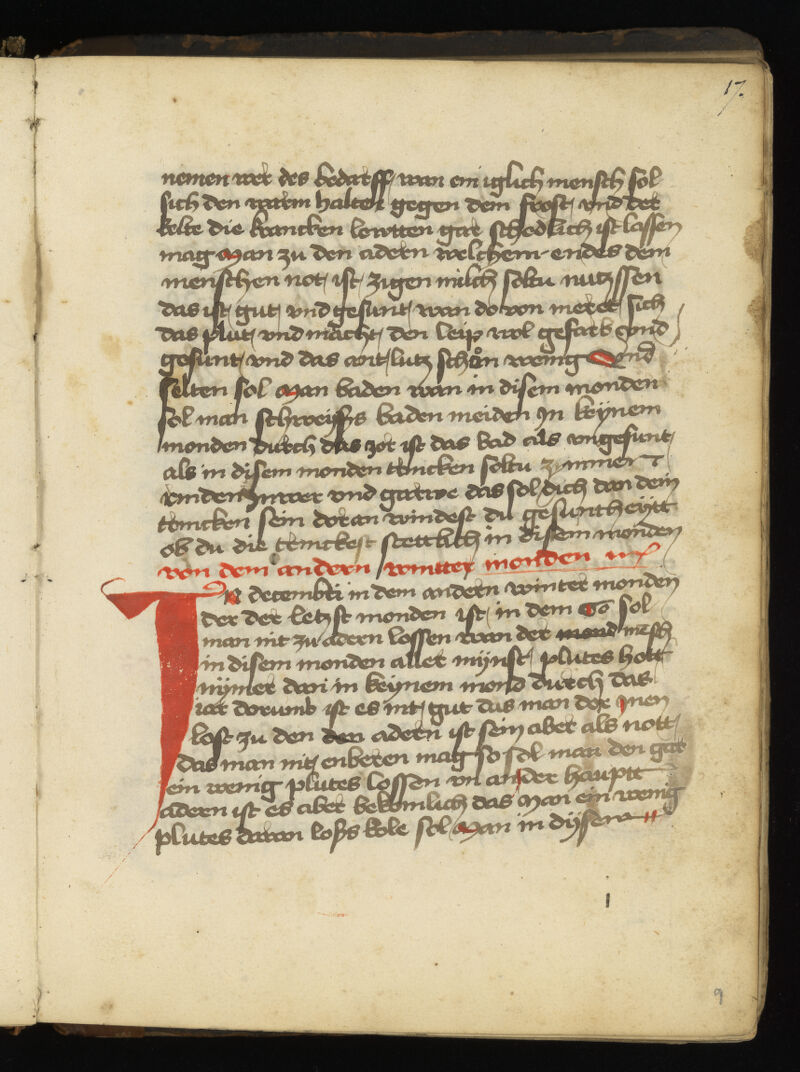 17.
nemen wer des bedarff wan ein iglich mensch sol
sich den warm halten gegen dem frost und der
kelte die krancken lewtten gar schedlich ist lassen
mag man zu den adern welchem endes dem
menschen not ist zigen milch soltu nutzssen
das ist gut und gesunt wan do von meret sich
das plut und macht den leip wol gefarb und
gesunt und das antlutz schon wenig und
selten sol man baden wan in disem monden
sol man schweisss baden meiden in keynem
monden durch das jor ist das bad als ungesunt
als in disem monden trincken soltu zymmet
rinden ingwer und das sol dich von dem
trincken sein doran vindest du gesuntheytt
ob du die trinckest stettlich in disem monden
von dem andern wintter monden
In decembri in dem andern winter monden
der der letzst monden ist in dem so sol
man nit zu adern lossen wan der mensch
in disem monden aller mynst plutes hott
nymer dan in keynem mond durch das
iar dorumb ist es nit gut das man dor ynen
lost zu den den adern ist sein aber als nott
das man nit enberen mag so sol man den gar
ein wenig plutes lossen an der hauptt
adern ist es aber bekomlich das man ein wenig
plutes daran loss kole sol man in dysem
9